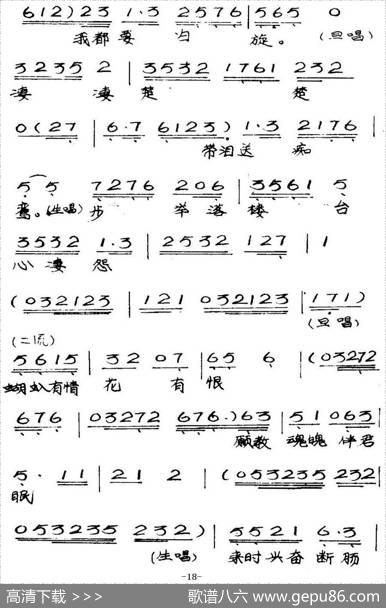 612)23 1·3 2576 | 565 0
我都要 与 旋。 (旦唱)
3235 2 | 3532 1761 232
凄 凄 楚 楚
0(27 | 6·7 6123) 1·3 2176 |
带泪送 痴
5 5 7276 206 | 3561 5
鸾。(生唱)步 举 落 楼 台
3532 1·3 | 2532 127 | 1
心 凄 怨
(032123 | 121 032123 | 171)
(旦唱)
(二流)
5615 | 32 07 | 65 6 | (03272
蝴蝶有情 花 有 恨
676 | 03272 676·)63 | 51 063
愿教 魂魄 伴君
5· 11 | 21 2 | (053235 232 |
眠
053235 232) | 5521 6·3 |
(生唱) 来时兴奋 断肠
-18-
高清下载 >>> 歌谱八六 www.gepu86.com